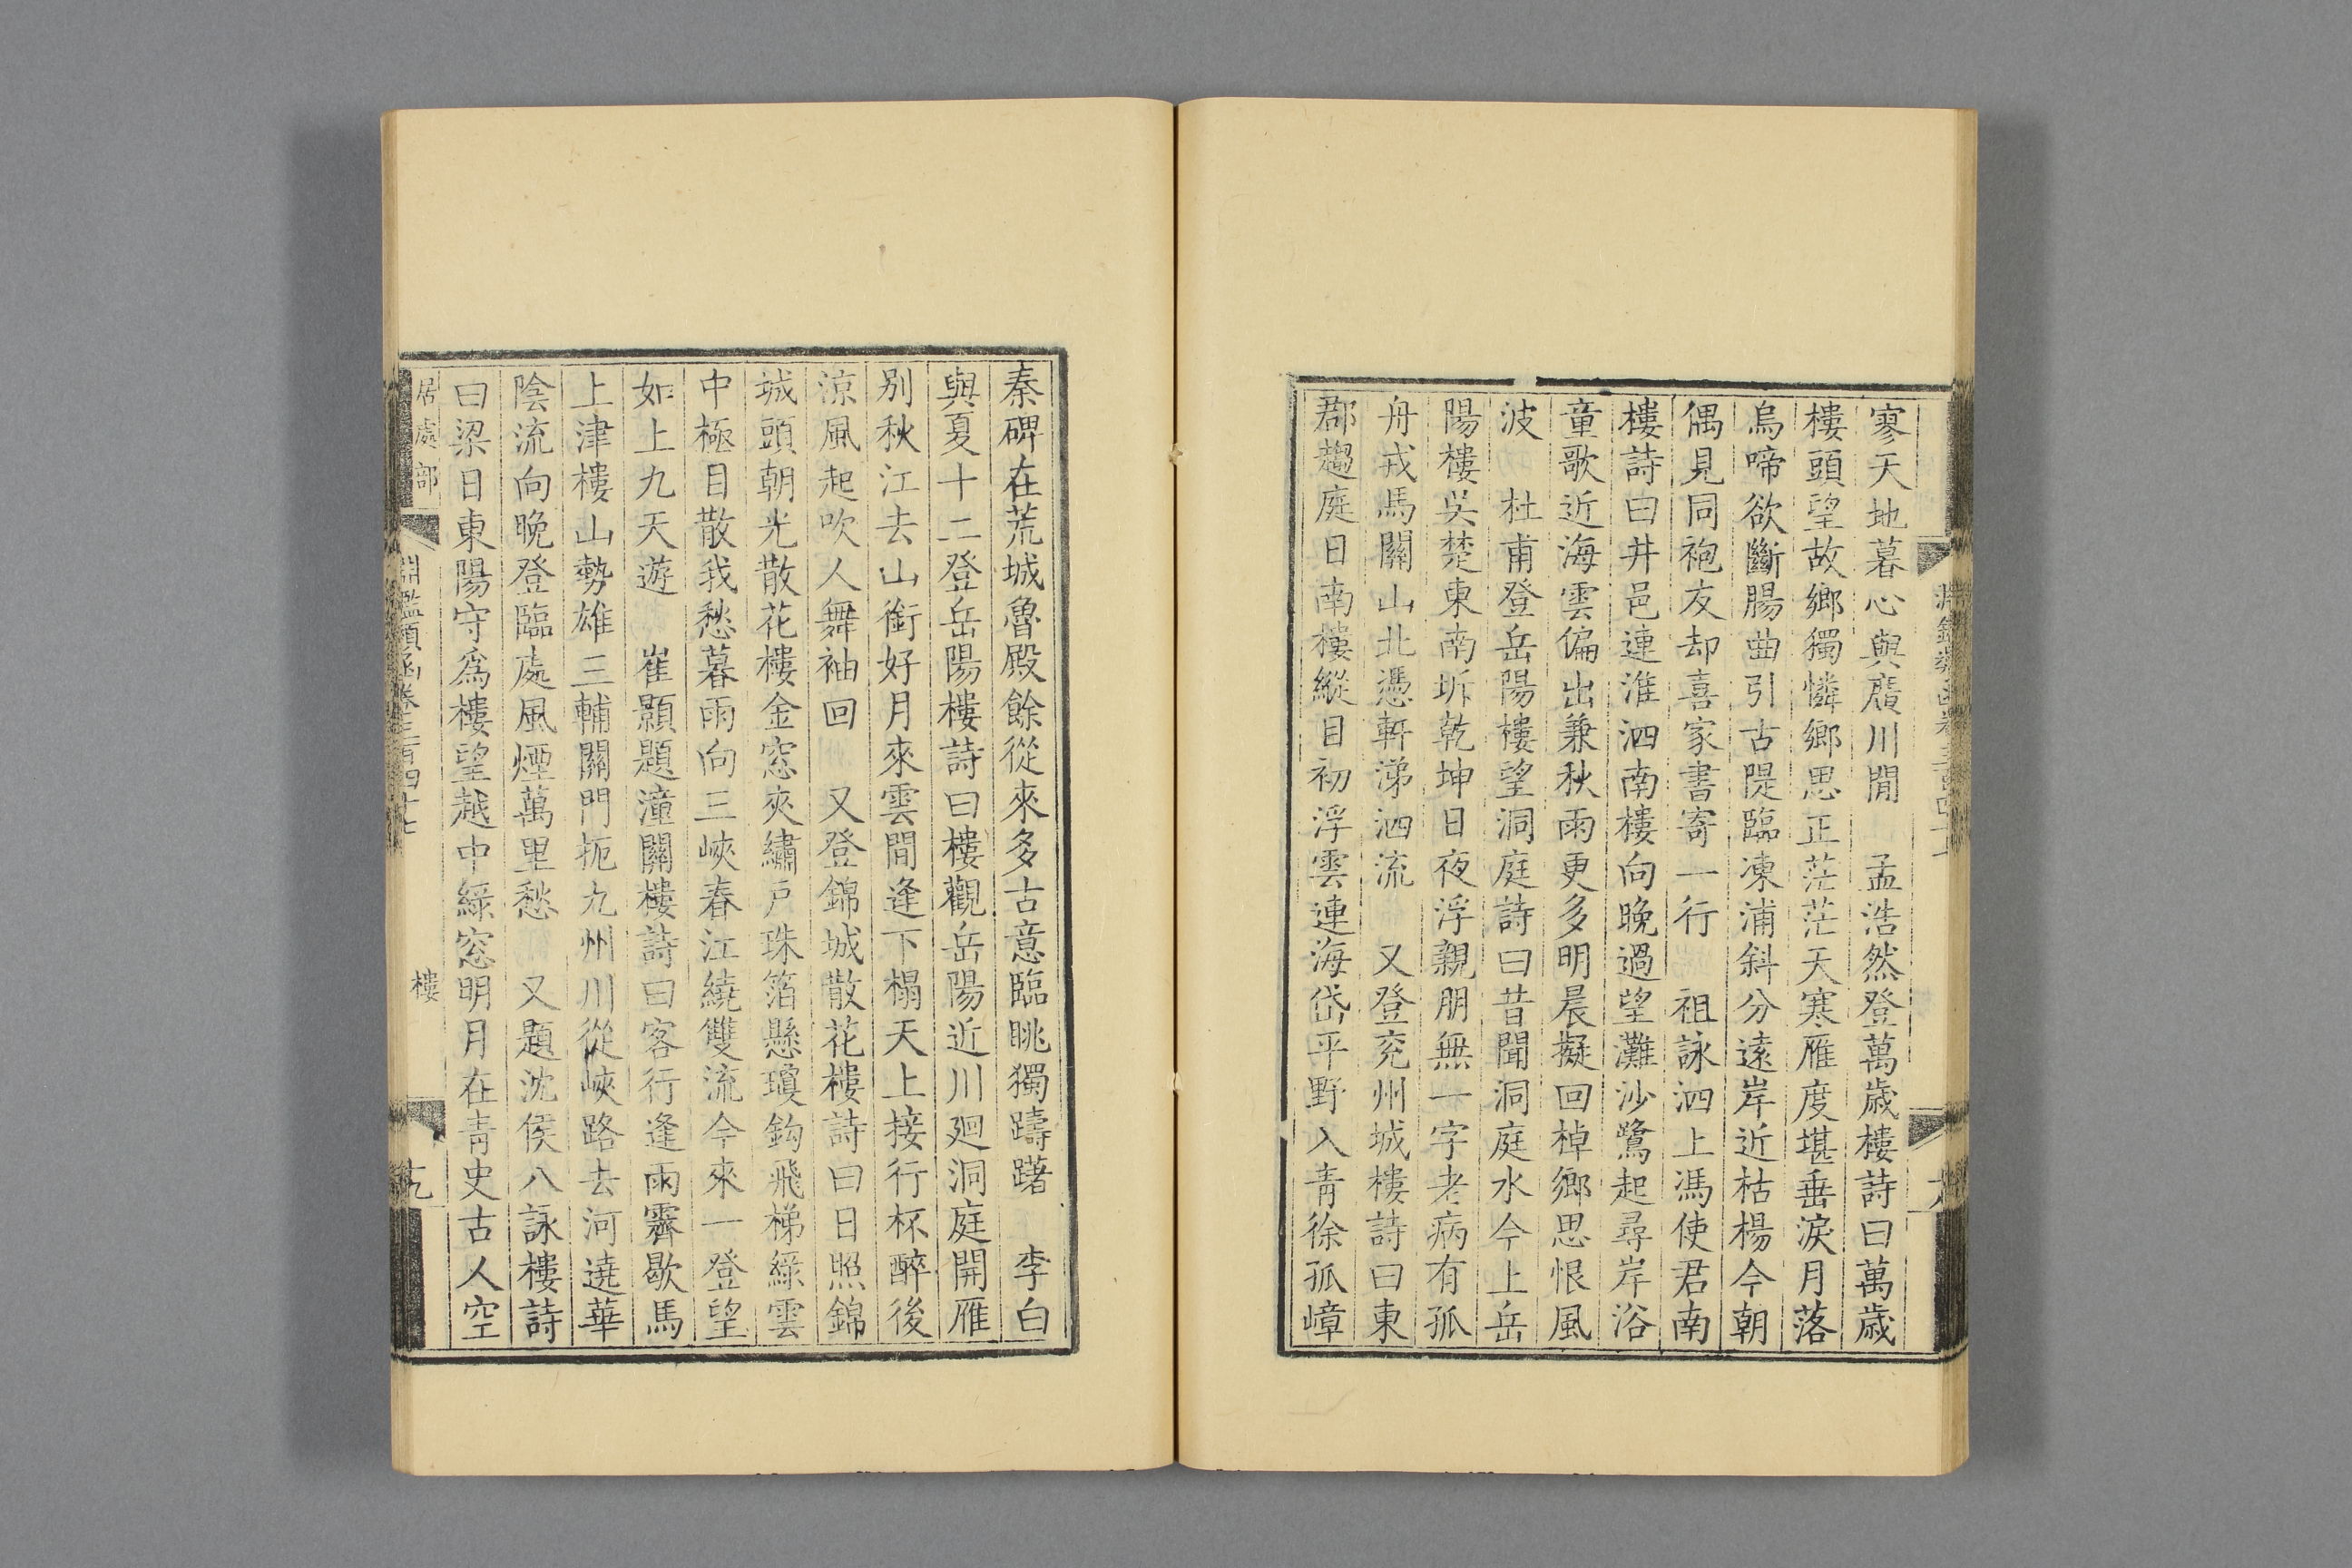 寥天地暮心與廣川閒　孟浩然登萬歲樓詩曰萬歲
樓頭望故鄉獨憐鄉思正茫茫天寒雁度堪垂淚月落
烏啼欲斷腸曲引古隄臨凍浦斜分遠岸近枯楊今朝
偶見同袍友却喜家書寄一行　祖詠泗上馮使君南
樓詩曰井邑連淮泗南樓向晚過望灘沙鷺起尋岸浴
童歌近海雲偏出兼秋雨更多明晨擬回棹鄉思恨風
波　杜甫登岳陽樓望洞庭詩曰昔聞洞庭水今上岳
陽樓吳楚東南坼乾坤日夜浮親朋無一字老病有孤
舟戎馬關山北憑軒涕泗流　又登兖州城樓詩曰東
郡趨庭日南樓縱目初浮雲連海岱平野入青徐孤嶂
秦碑在荒城魯殿餘從來多古意臨眺獨躊躇　李白
與夏十二登岳陽樓詩曰樓觀岳陽近川廻洞庭開雁
別秋江去山銜好月來雲間逢下榻天上接行杯醉後
涼風起吹人舞袖回　又登錦城散花樓詩曰日照錦
城頭朝光散花樓金窓夾繡戶珠箔懸瓊鈎飛梯綠雲
中極目散我愁暮雨向三峽春江繞雙流今來一登望
如上九天遊　崔顥題潼關樓詩曰客行逢雨霽歇馬
上津樓山勢雄三輔關門扼九州川從峽路去河遶華
陰流向晚登臨處風煙萬里愁　又題沈侯八詠樓詩
曰梁日東陽守爲樓望越中綠窓明月在青史古人空
居處部
淵鑑類函卷三百四十七
樓
十九